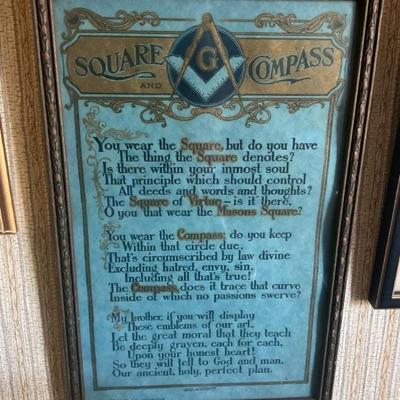 SQUARE
G
AND
COMPASS
You wear the Square, but do you have
The thing the Square denotes?
Is there within your inmost soul
That principle which should control
All deeds and words and thoughts?
The Square of Virtue – is it there,
O you that wear the Masons Square?
You wear the Compass; do you keep
Within that circle due,
That's circumscribed by law divine
Excluding hatred, envy, sin,
Including all that's true!
The Compass, does it trace that curve
Inside of which no passions swerve?
My brother, if you will display
These emblems of our art,
Let the great moral that they teach
Be deeply graven, each for each,
Upon your honest heart!
So they will tell to God and man.
Our ancient, holy, perfect plan.